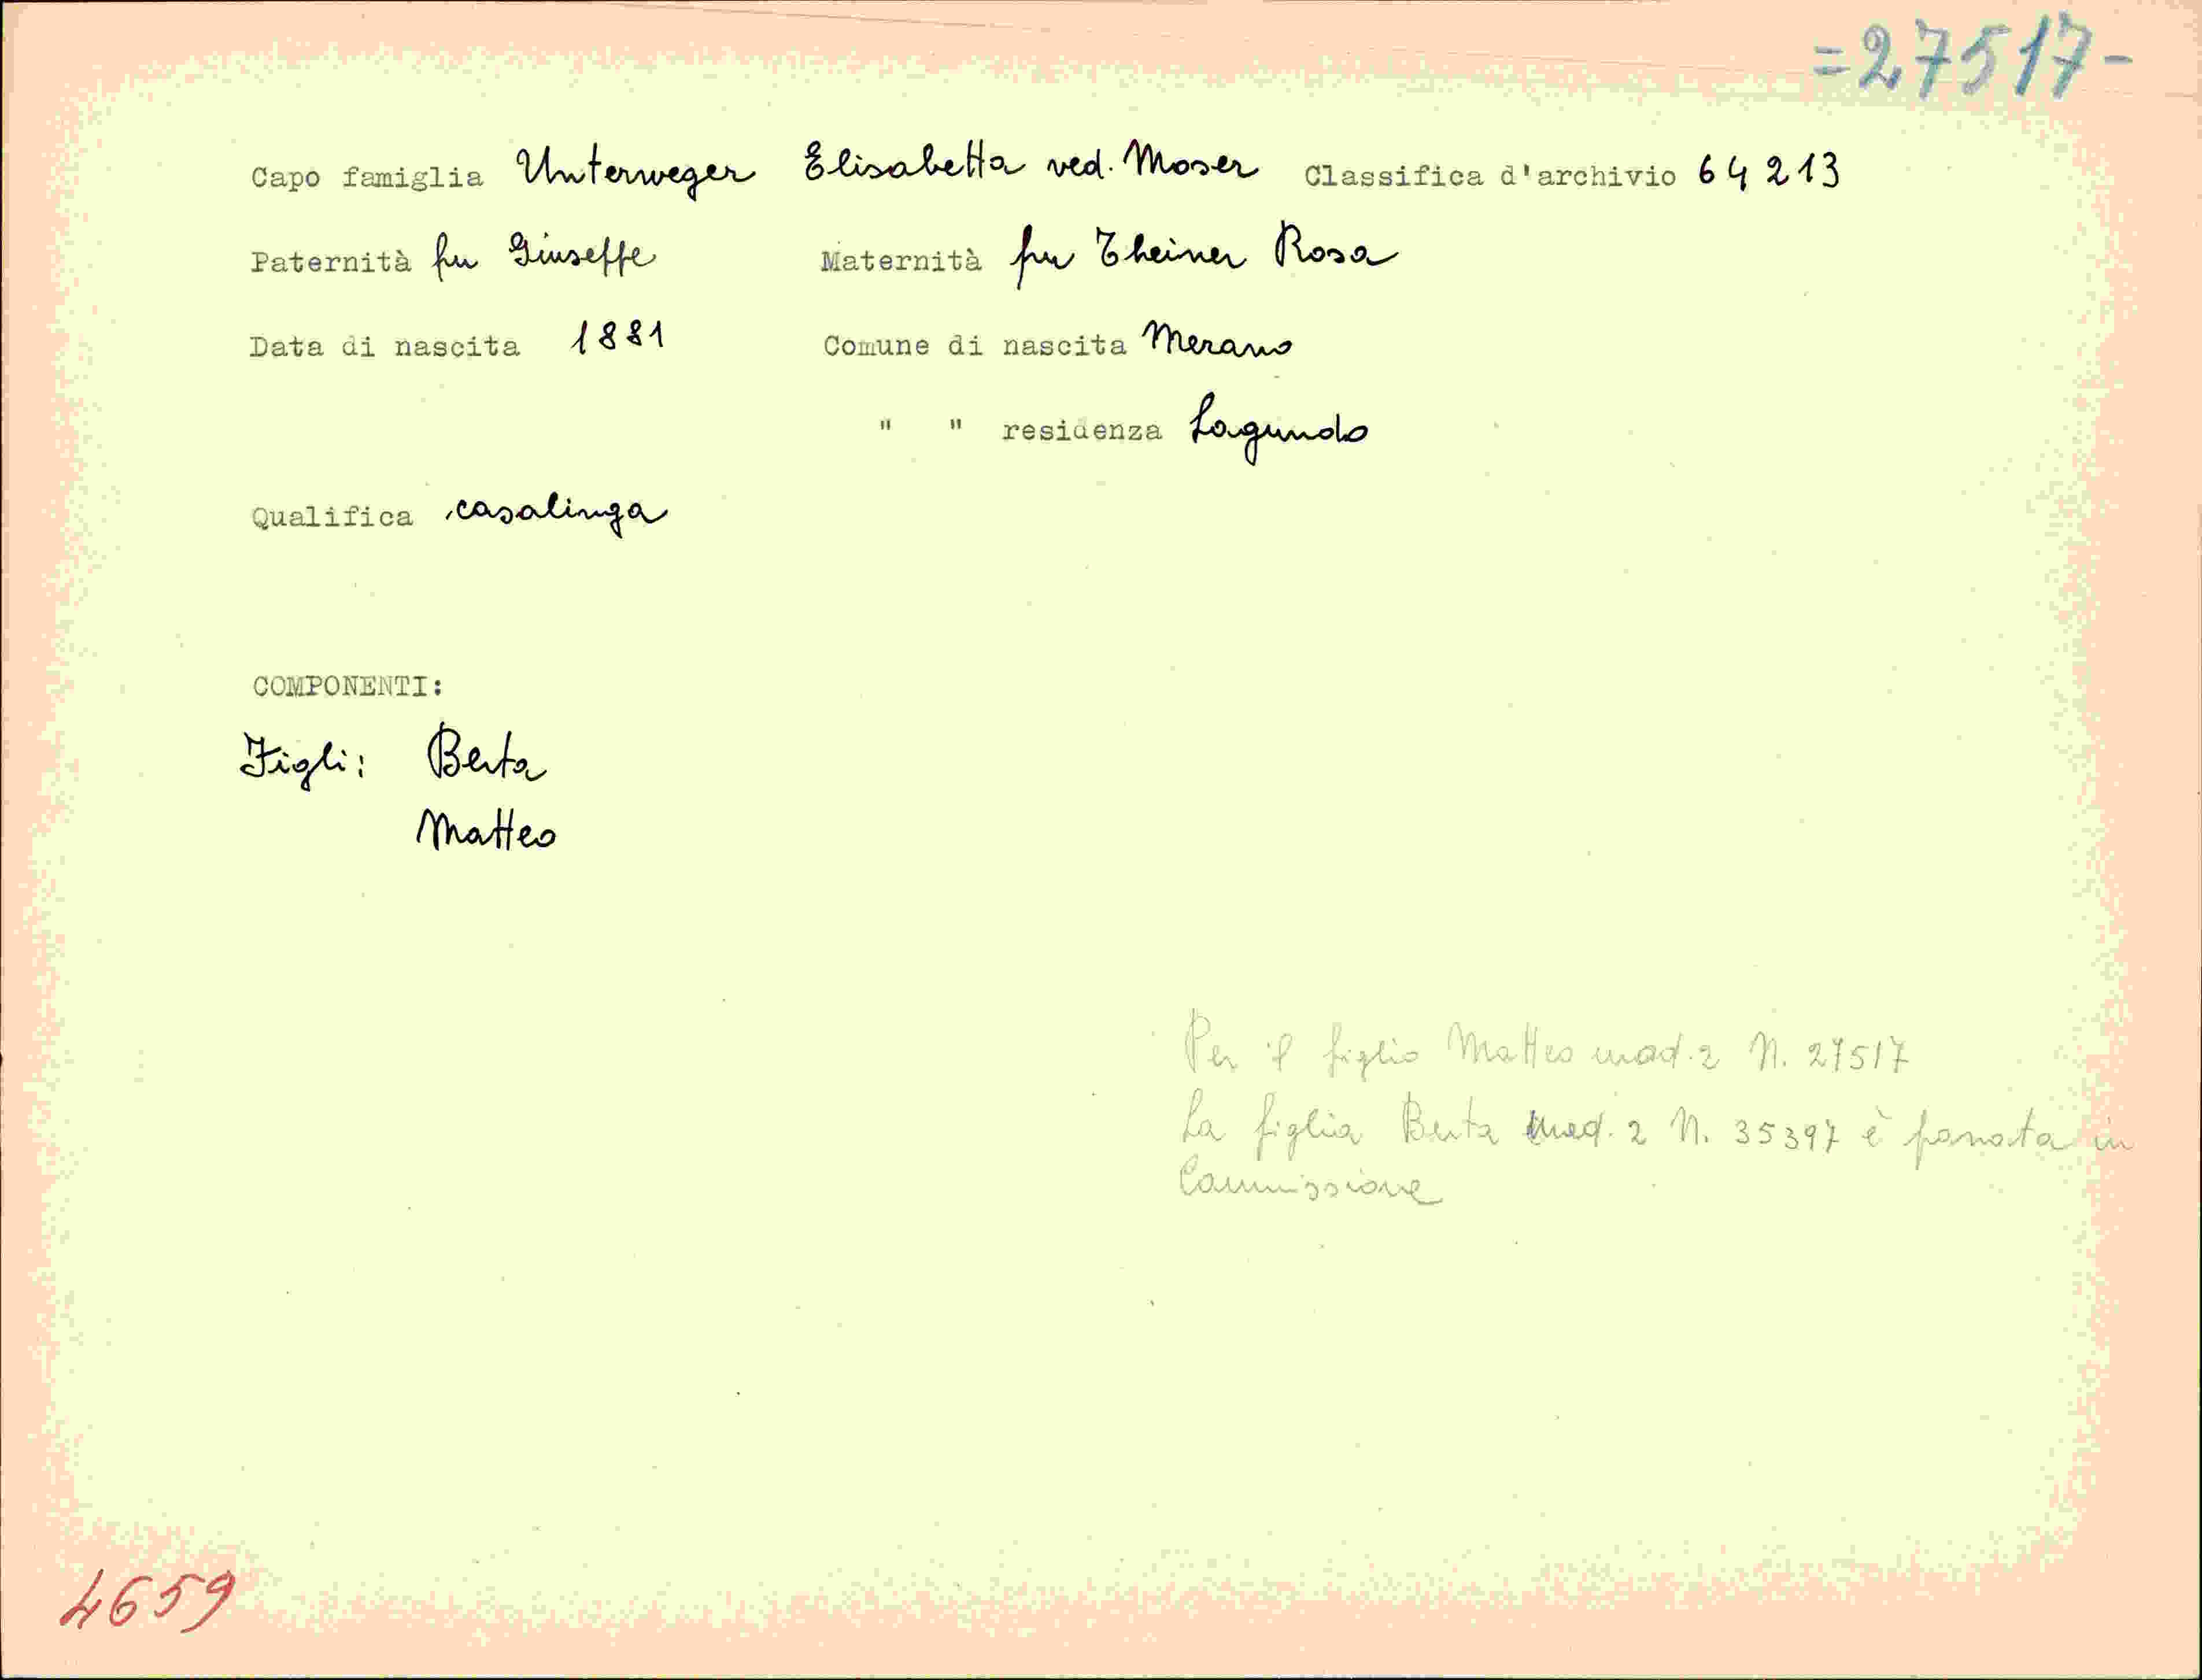 =27517-
Capo famiglia Unterweger Elisabetta ved. Moser Classifica d'archivio 64213
Paternità fu Giuseppe Maternità fu Theiner Rosa
Data di nascita 1881 Comune di nascita Merano
" " residenza Lagundo
Qualifica casalinga
COMPONENTI:
Figli: Berta
Matteo
Per il figlio Matteo mod. 2 N. 27517
La figlia Berta mod. 2 N. 35397 è passata in
Commissione
4659